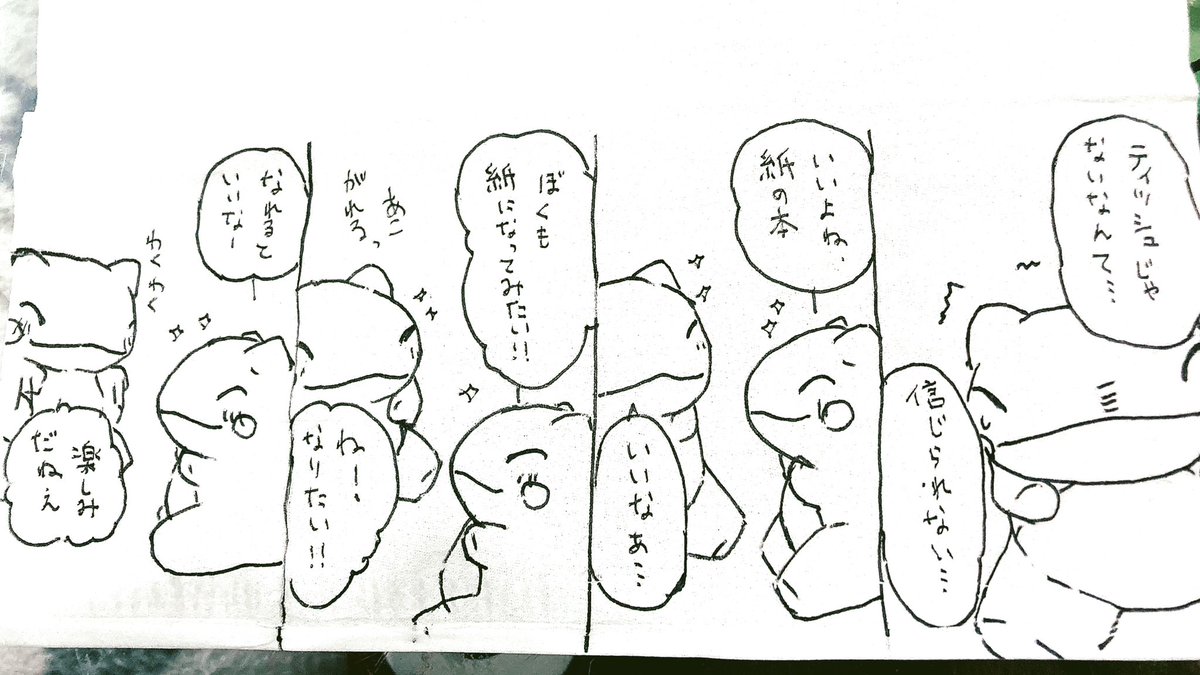 ティッシュじゃ
ないなんて…
信じられない…
いいよね、
紙の本
いいなぁ…
ぼくも
紙になってみたい!!
あこ
がれるっ
ねー、
なりたい!!
なれるて
いいなー
わくわく
楽しみ
だねぇ